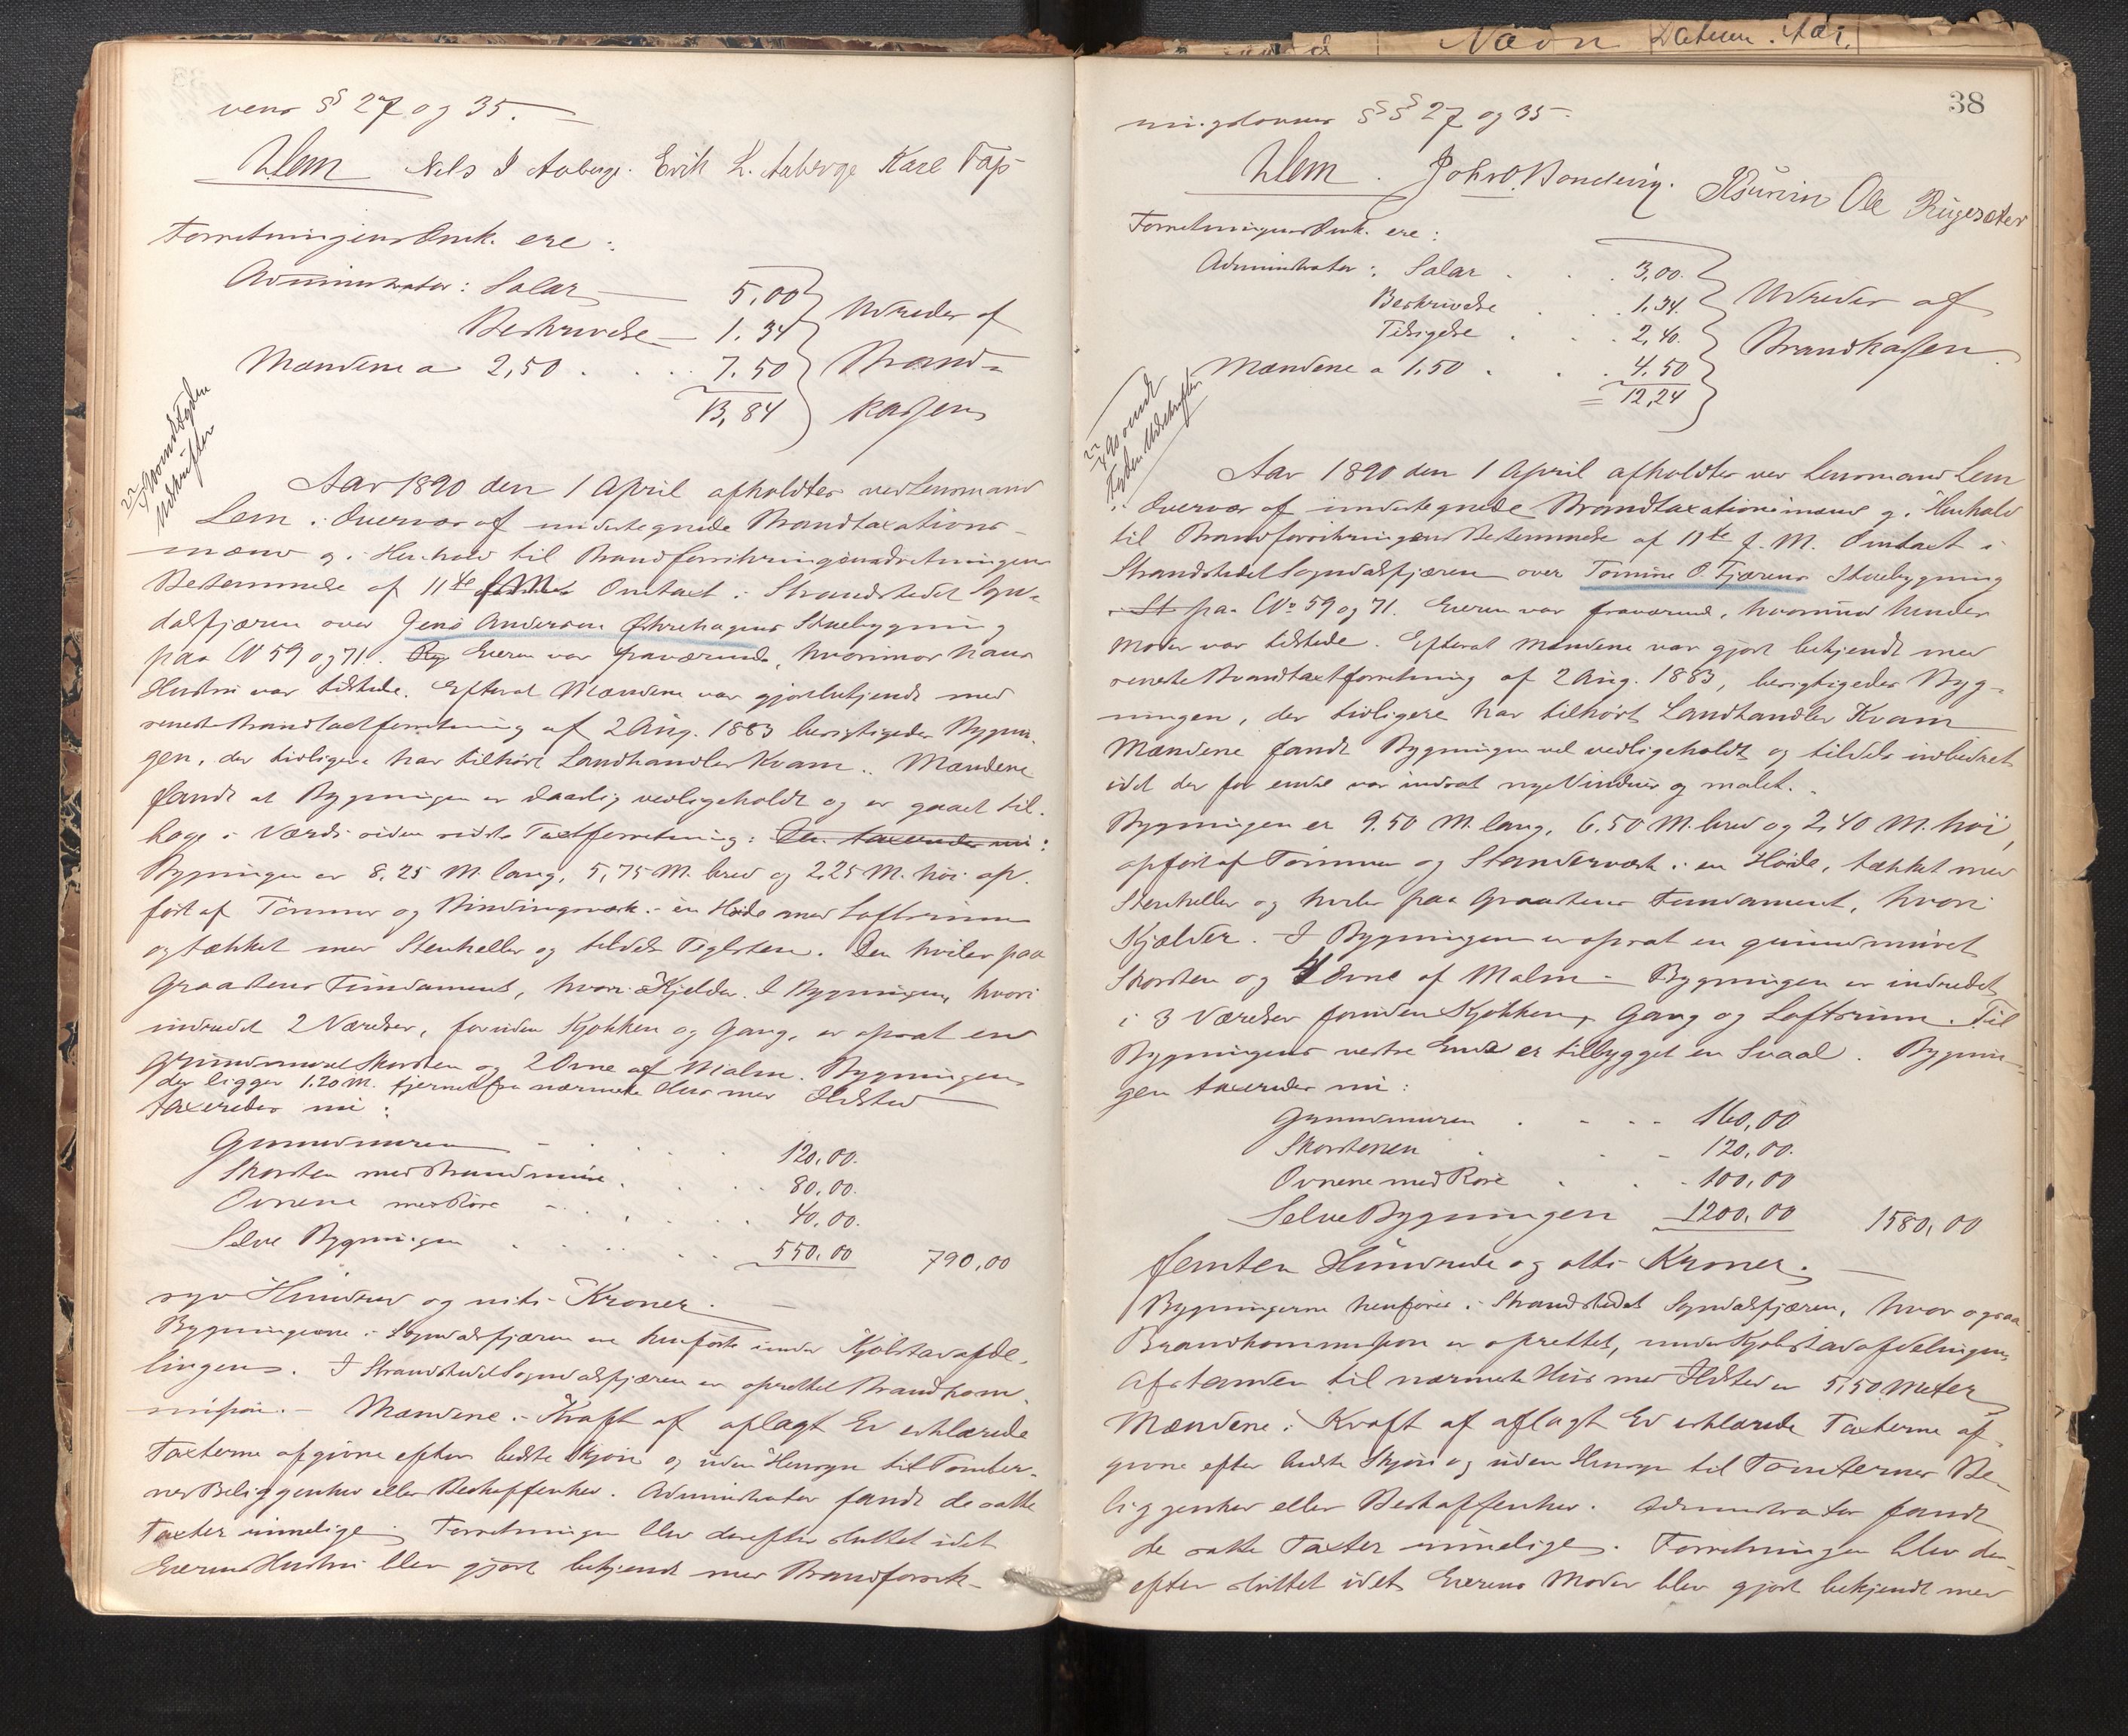 vens § 27 og 35.
Lem Nels I Aaberge. Erik L. Aaberge Karl Fap
Forretningens Omk. ere:
Administrator: Salær 5,00
Beskrivelse 1.34
Mændene a 2,50 . . . 7.50
13,84
Udredes af
Brand=
kassen
22/4 90 sendt Eyden
Udskriften
Aar 1890 den 1 April afholdtes ved Lensmand
Lem i Overvær af undertegnede Brandtaxations-
mænd og i Henhold til Brandforsikringsindretningens
Bestemmelse af 11te f. M. Omtaxt i Strandstedet Sogn-
dalsfjæren over Jens Andersen Øhrehagens Stuebygning
paa No 59 og 71. Eieren var fraværende, hvorimod hans
Hustru var tilstede. Efterat Mændene var gjort bekjendt med
seneste Brandtaxtforretning af 2 Aug. 1883 besigtigedes Bygnin-
gen, der tidligere har tilhørt Landhandler Kvam. Mændene
fandt at Bygningen er daarlig vedligeholdt og er gaaet til-
bage i Værdi siden sidste Taxtforretning: Den taxeredes ni:
Bygningen er 8,25 M. lang, 5,75 M. bred og 2,25 M. høi op-
ført af Tømmer og Bindingsværk i en Høide med Loftsrum
og tækket med Stenheller og tildels Teglsten. Den hviler paa
Graastens Fundament, hvori Kjelder. I Bygningen, hvori
indredet 2 Værelser, foruden Kjøkken og Gang, er opsat en
grundmuret Skorsten og 2 Ovne af Malm. Bygningen
der ligger 1.20 M. fjernet fra nærmeste Hus med Ildsted
taxeredes ni:
Grundmuren . . . . 120,00.
Skorsten med Brandmure . . . 80,00.
Ovnene med Rør . . . . 40,00.
Selve Bygningen . . . . 550,00 790,00
syv Hundred og niti Kroner.
Bygningerne i Sogndalsfjæren ere henførte under Kjøbstadafde-
lingen. I Strandstedet Sogndalsfjæren er oprettet Brandkom-
mission. Mændene i Kraft af aflagt Ed erklærede
Taxterne afgivne efter bedste Skjøn og uden Hensyn til Tomter-
nes Beliggenhed eller Beskaffenhed. Administrator fandt de satte
Taxter rimelige. Forretningen blev derefter sluttet idet
Eierens Hustru blev gjort bekjendt med Brandforsik-
38
Navn Datum. Aar.
ringslovens §§ 27 og 35.
Lem. John O. Ole Rugesæter
Forretningens Omk. ere:
Administrator: Salær . . . 3,00.
Beskrivelse . . . 1.34.
Tilsigelse . . . 2,40.
Mændene a 1.50 . . . 4.50
= 12,24
Udredes af
Brandkassen
22/4 90 sendt
Eyden Udskriften
Aar 1890 den 1 April afholdtes ved Lensmand Lem
i Overvær af undertegnede Brandtaxationsmænd og i Henhold
til Brandforsikringens Bestemmelse af 11te f. M. Omtaxt i
Strandstedet Sogndalsfjæren over Tomine O. Fjærens Stuebygning
i St paa No 59 og 71. Eieren var fraværende, hvorimod hendes
Moder var tilstede. Efterat Mændene var gjort bekjendt med
seneste Brandtaxtforretning af 2 Aug. 1883, besigtigedes Byg-
ningen, der tidligere har tilhørt Landhandler Kvam
Mændene fandt Bygningen vel vedligeholdt og tildels indbedret
idet der for endel var indsat nye Vinduer og malet.
Bygningen er 9.50 M. lang, 6,50 M. bred og 2,40 M. høi,
opført af Tømmer og Standerværk i en Høide, tækket med
Stenheller og hviler paa Graastens Fundament, hvori
Kjælder. I Bygningen er opsat en grundmuret
Skorsten og 4 Ovne af Malm. Bygningen er indredet
i 3 Værelser foruden Kjøkken, Gang og Loftsrum. Til
Bygningens vestre Ende er tilbygget en Svaal. Bygnin-
gen taxeredes ni:
Grundmuren . . . . 160,00
Skorstenen . . . 120,00.
Ovnene med Rør . . . 100,00
Selve Bygningen 1200,00 1580,00
femten Hundrede og otti Kroner.
Bygningerne henføres i Strandstedet Sogndalsfjæren, hvor ogsaa
Brandkommission er oprettet, under Kjøbstadafdelingen
Afstanden til nærmeste Hus med Ildsted er 5,50 Meter
Mændene i Kraft af aflagt Ed erklærede Taxterne af-
givne efter bedste Skjøn og uden Hensyn til Tomternes Be-
liggenhed eller Beskaffenhed. Administrator fandt
de satte Taxter rimelige. Forretningen blev der-
efter sluttet idet Eierens Moder blev gjort bekjendt med